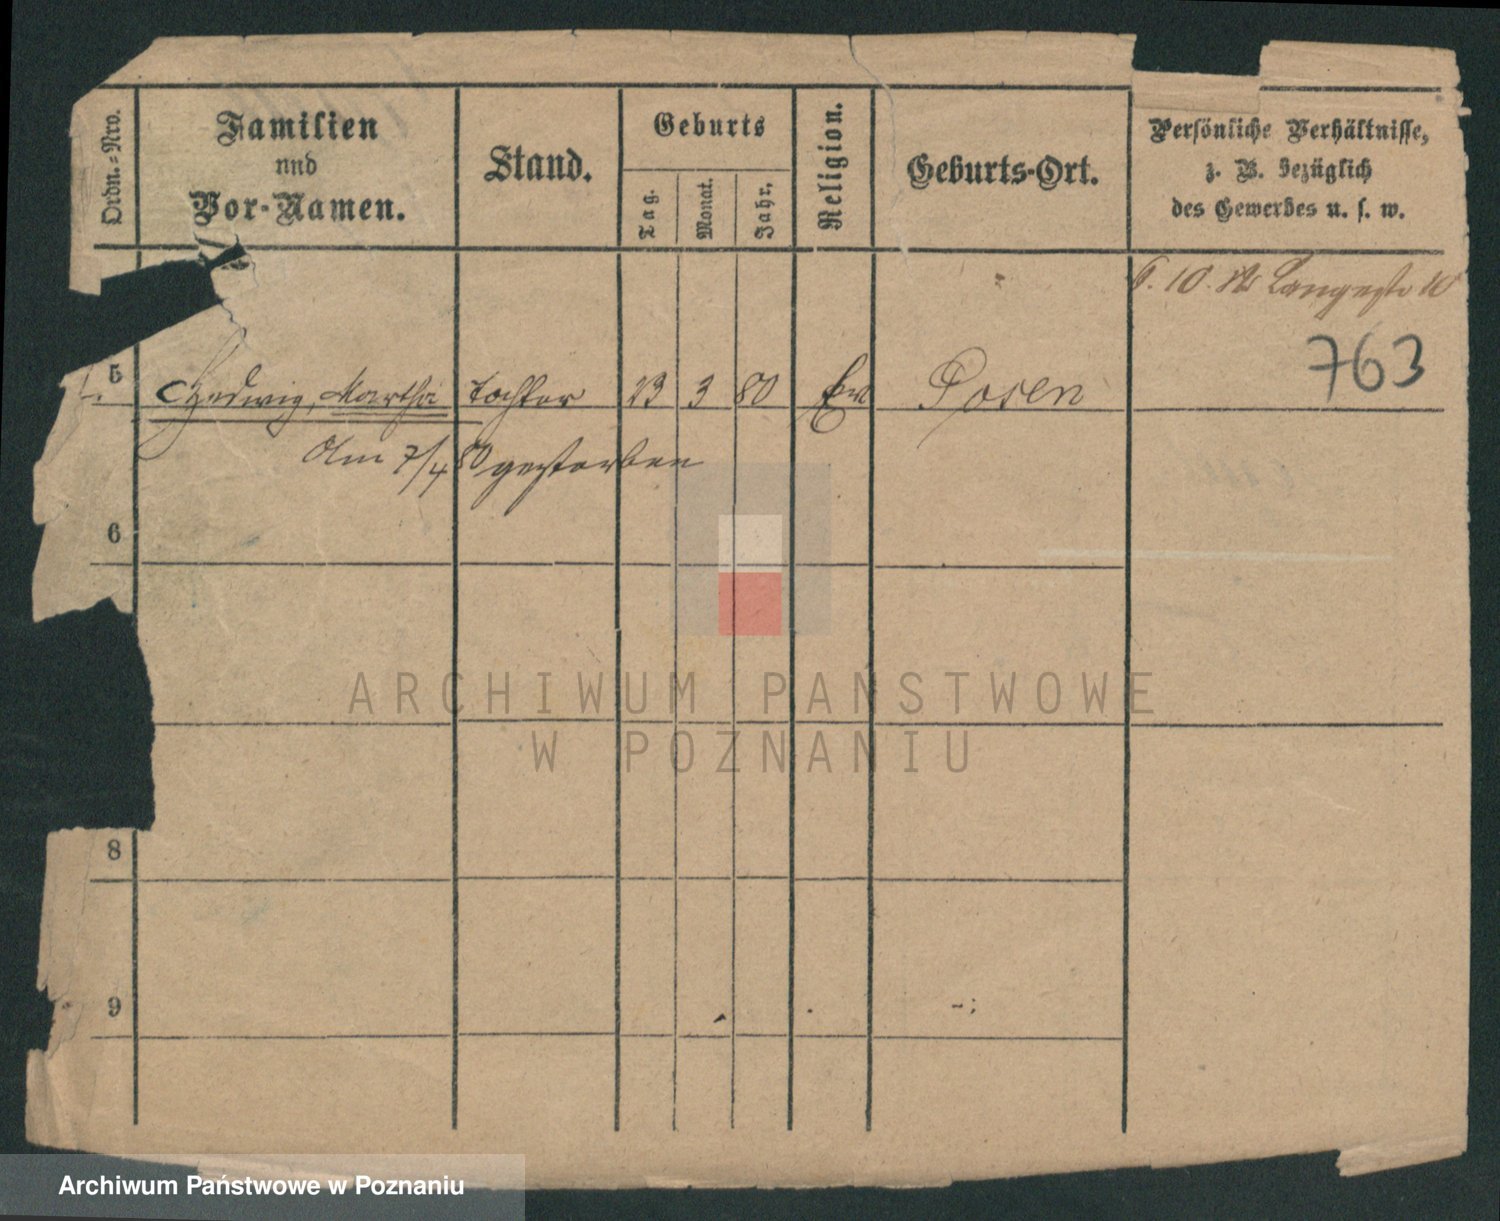 Ordn.=Nro.
Familien
und
Vor-Namen.
Stand.
Geburts
Tag.
Monat.
Jahr.
Religion.
Geburts-Ort.
Persönliche Verhältnisse,
z. B. bezüglich
des Gewerbes u. s. w.
10.
763
5 Hedwig, Martha Tochter 23 3 80 Ev Posen
Am 7/4 80 gestorben
6
8
9
ARCHIWUM PAŃSTWOWE
W POZNANIU
Archiwum Państwowe w Poznaniu